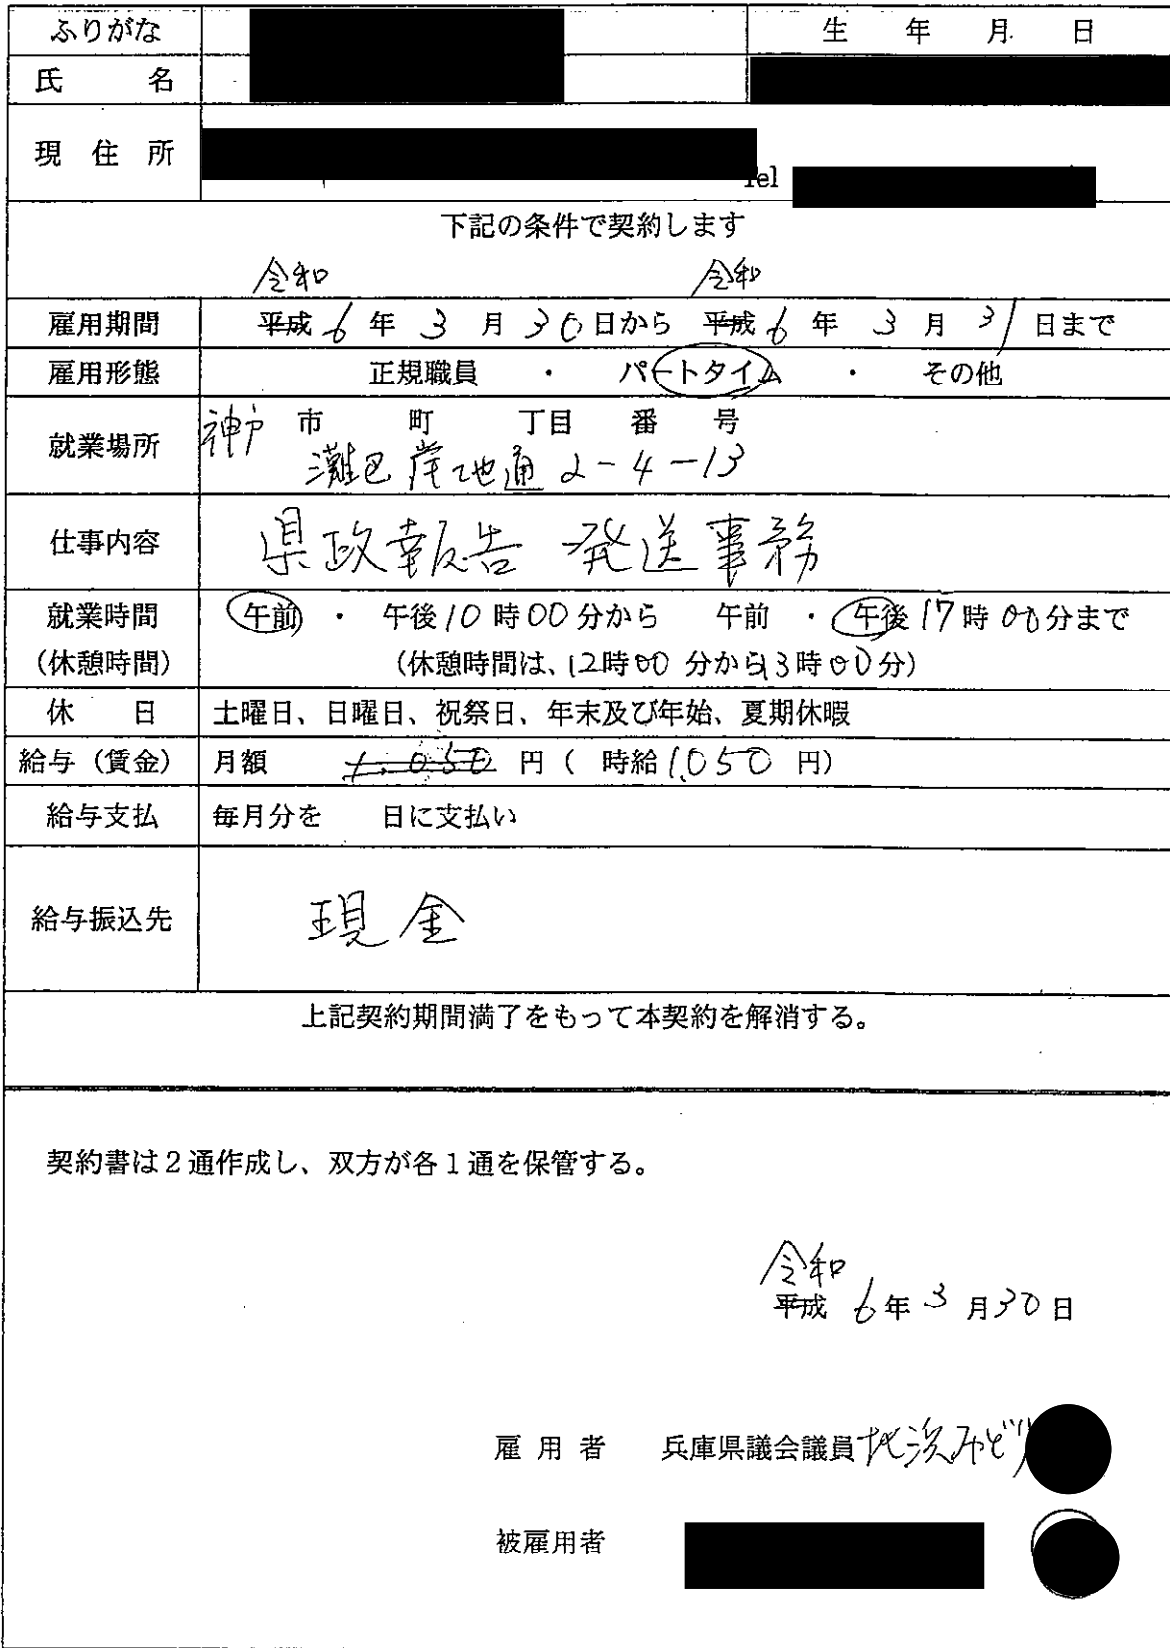 ふりがな 生 年 月 日
氏 名
現 住 所
Tel
下記の条件で契約します
令和 令和
雇用期間 平成 6 年 3 月 30 日から 平成 6 年 3 月 31 日まで
雇用形態 正規職員 ・ パートタイム ・ その他
就業場所 神戸 市 町 丁目 番 号
灘区岸地通2-4-13
仕事内容 県政報告 発送事務
就業時間 午前 ・ 午後 10 時 00 分から 午前 ・ 午後 17 時 00 分まで
(休憩時間) (休憩時間は、12時00分から13時00分)
休 日 土曜日、日曜日、祝祭日、年末及び年始、夏期休暇
給与(賃金) 月額 1.050 円( 時給 1.050 円)
給与支払 毎月分を 日に支払い
給与振込先 現金
上記契約期間満了をもって本契約を解消する。
契約書は2通作成し、双方が各1通を保管する。
令和
平成 6 年 3 月 30 日
雇 用 者 兵庫県議会議員 北浜みどり
被雇用者